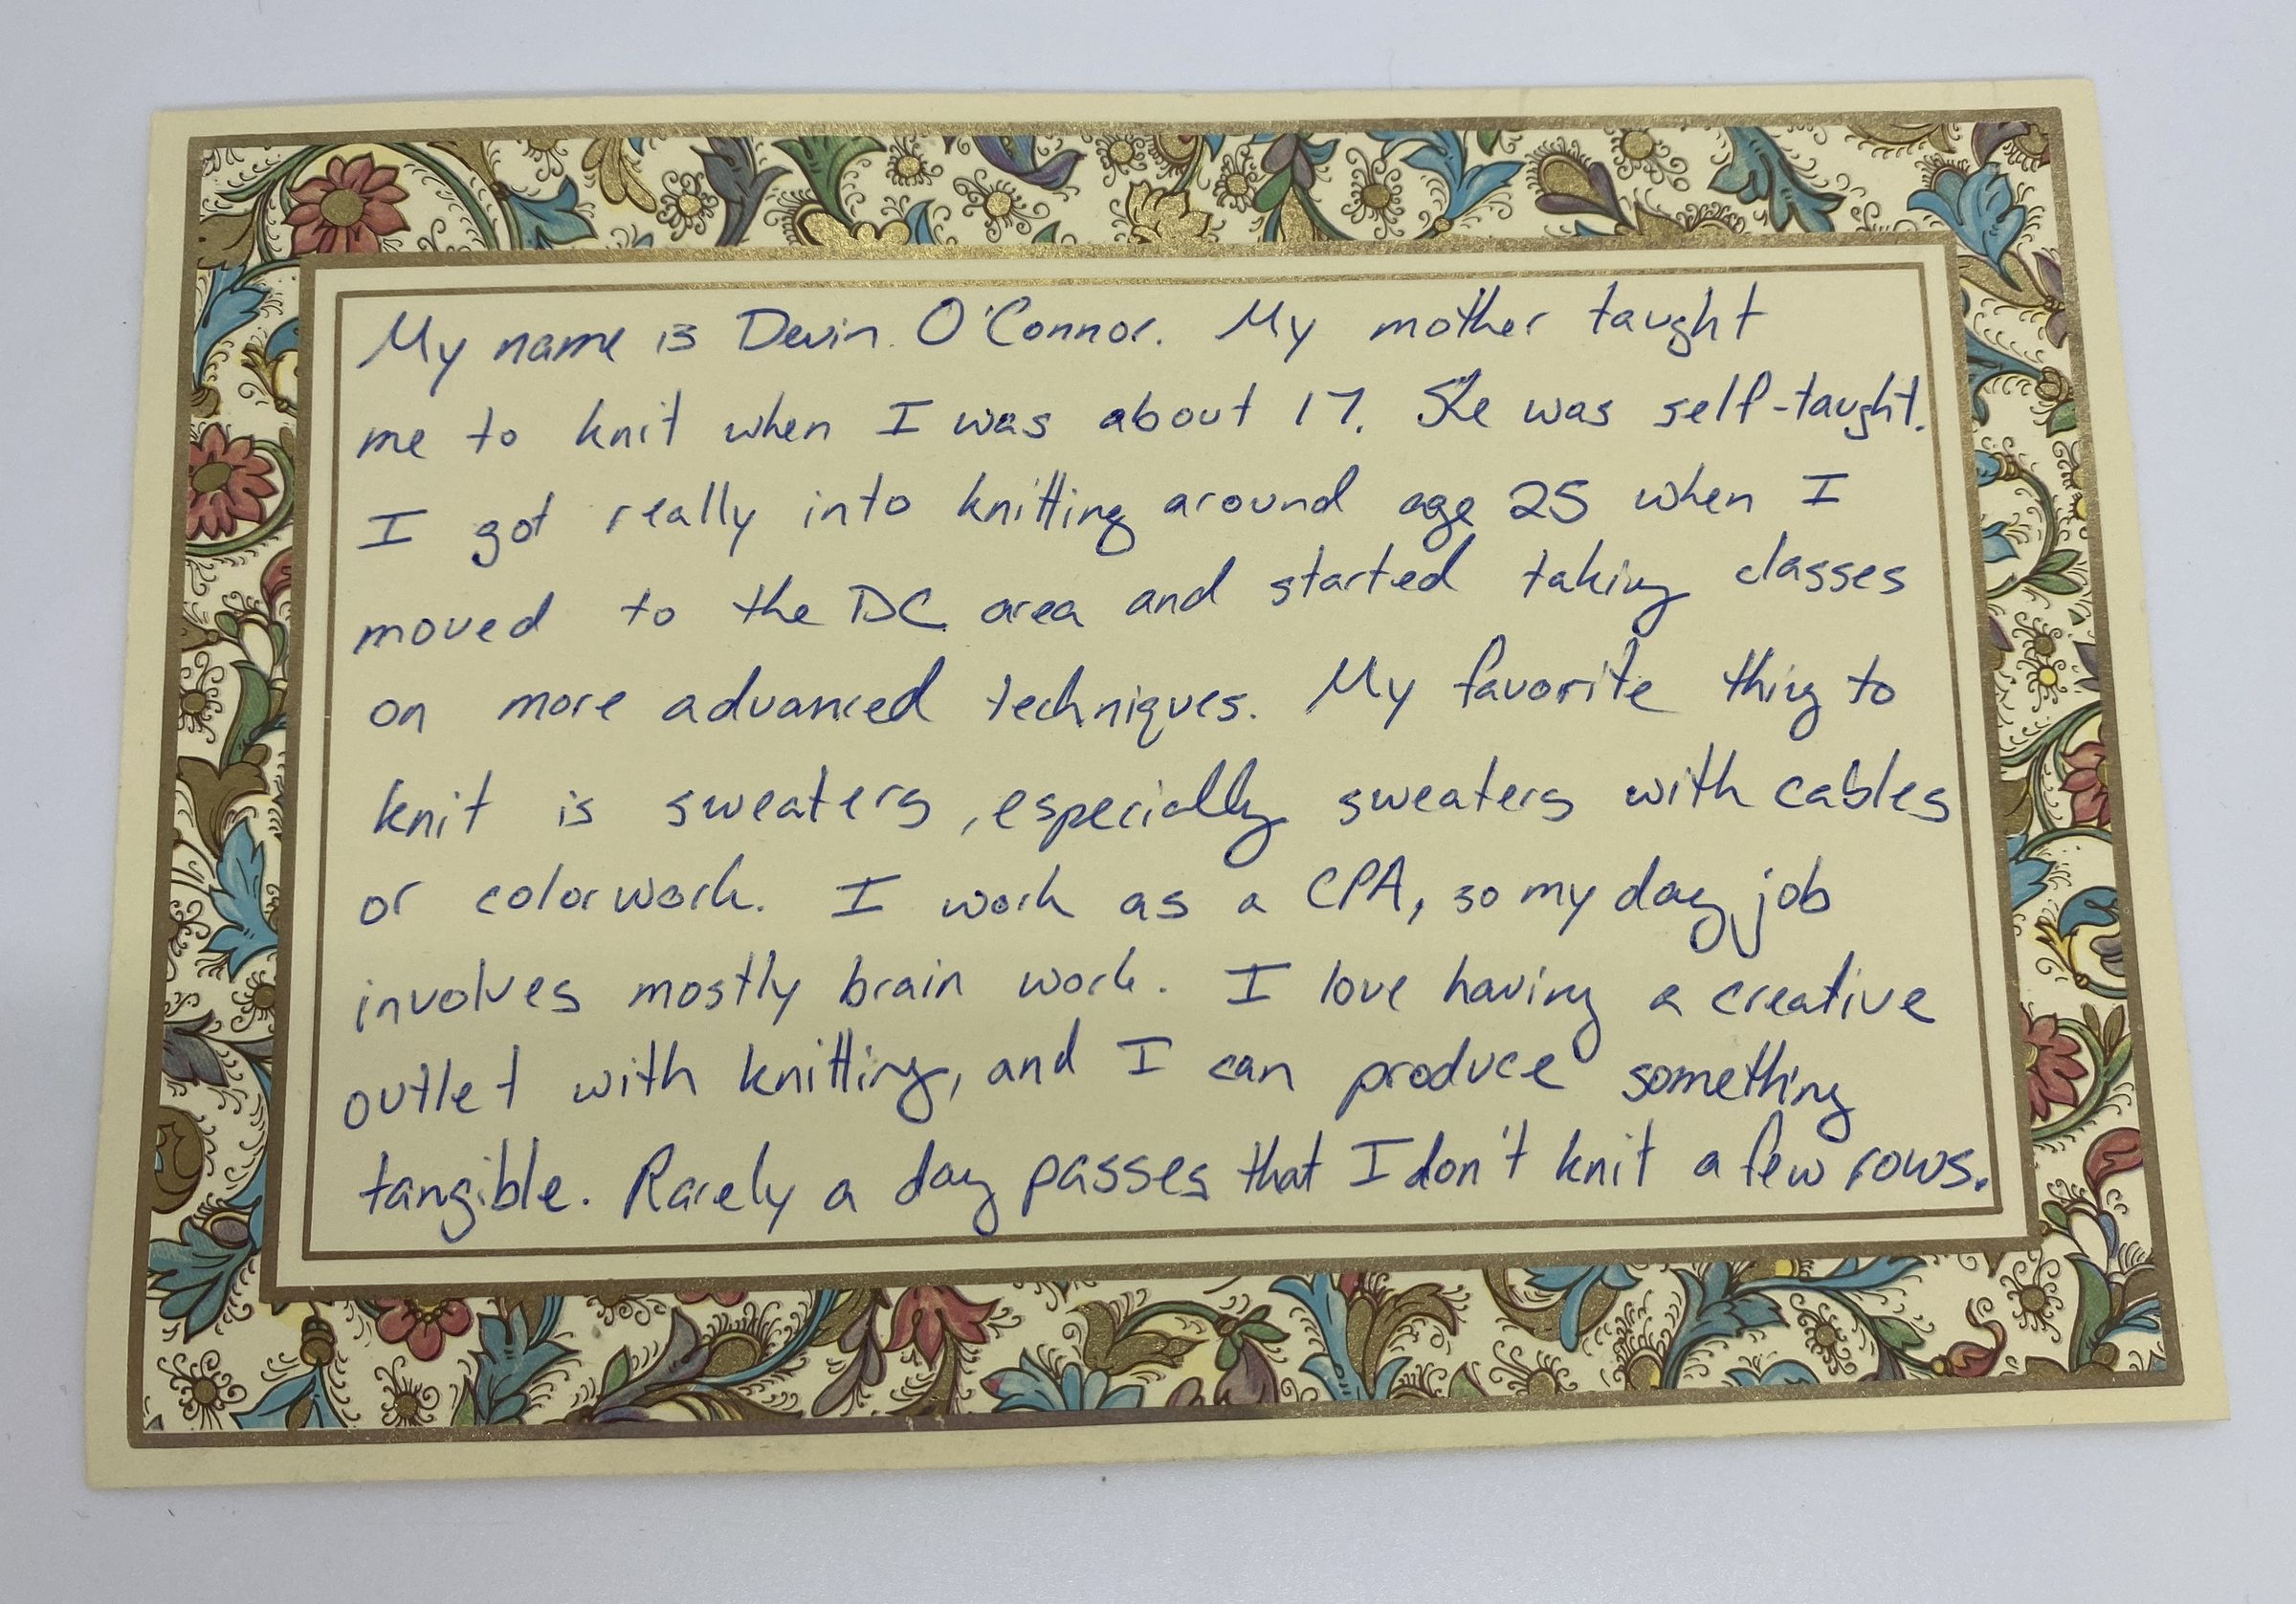 My name is Devin O'Connor. My mother taught
me to knit when I was about 17. She was self-taught.
I got really into knitting around age 25 when I
moved to the DC area and started taking classes
on more advanced techniques. My favorite thing to
knit is sweaters, especially sweaters with cables
or colorwork. I work as a CPA, so my day job
involves mostly brain work. I love having a creative
outlet with knitting, and I can produce something
tangible. Rarely a day passes that I don't knit a few rows.